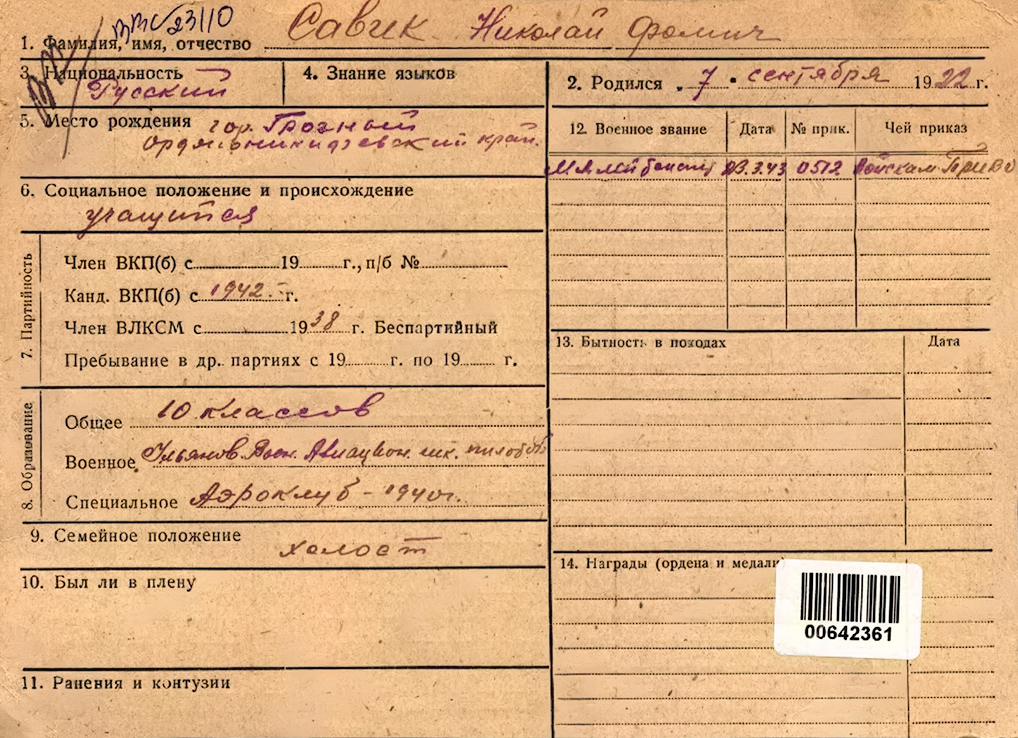 ВВС 23110
1. Фамилия, имя, отчество Савчек Николай Фомич
3. Национальность Русский
4. Знание языков
2. Родился „7 • сентября 1922 г.
5. Место рождения гор. Грозный
Орджоникидзевский край.
12. Военное звание Дата № прик. Чей приказ
Мл. лейтенант 23.3.43 0512 Войскам ПриВО
6. Социальное положение и происхождение
учащийся
7. Партийность
Член ВКП(б) с 19 г., п/б №
Канд. ВКП(б) с 1942 г.
Член ВЛКСМ с 1938 г. Беспартийный
Пребывание в др. партиях с 19 г. по 19 г.
13. Бытность в походах Дата
8. Образование
Общее 10 классов
Военное Ульянов. Воен. Авиацион. шк. пилотов
Специальное Аэроклуб – 1940 г.
9. Семейное положение холост
10. Был ли в плену
14. Награды (ордена и медали
00642361
11. Ранения и контузии